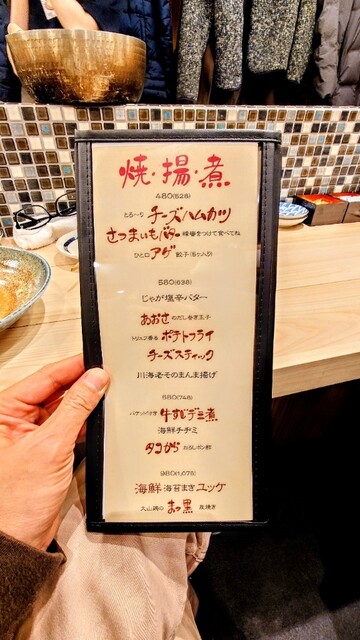 焼・揚・煮
480(528)
とろ〜り チーズハムカツ
さつまいもバター 蜂蜜をつけて食べてね
ひと口 アゲ 餃子(5ヶ入り)
580(638)
じゃが塩辛バター
あおさ のだし巻き玉子
トリュフ香る ポテトフライ
チーズスティック
川海老そのまんま揚げ
680(748)
バケット付き 牛すじデミ煮
海鮮チヂミ
タコから おろしポン酢
980(1,078)
海鮮 海苔まき ユッケ
大山鶏の まっ黒 炭焼き